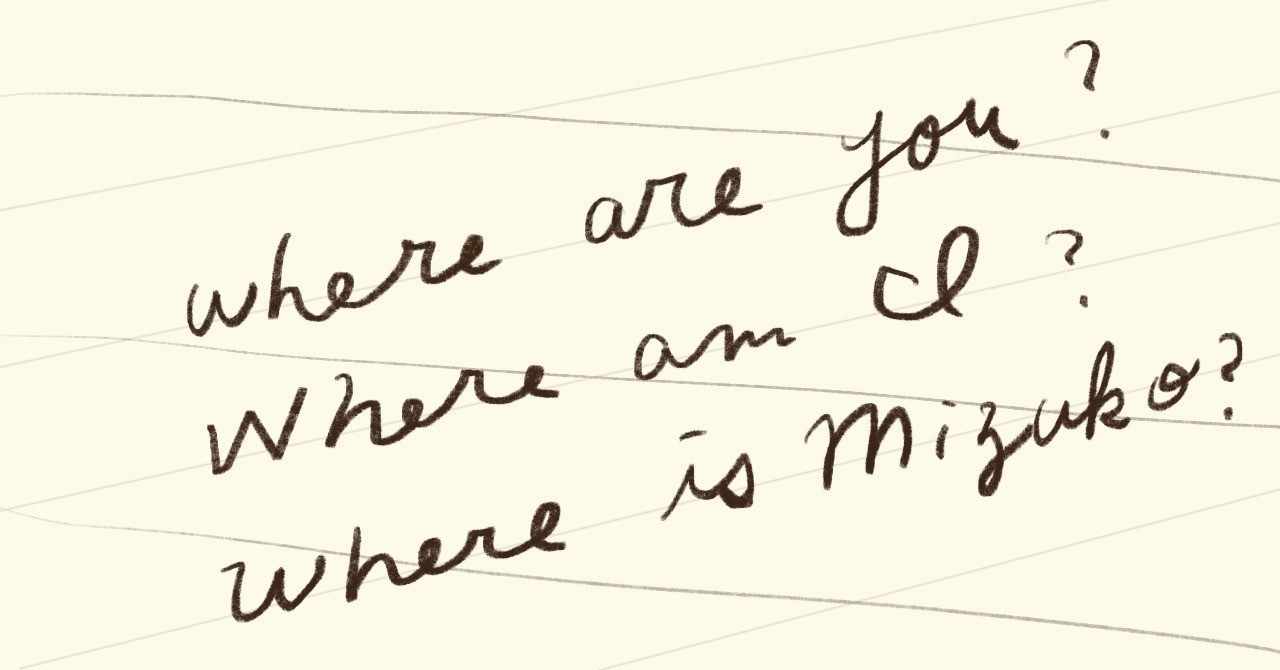 where are you?
Where am I?
where is Mizuko?